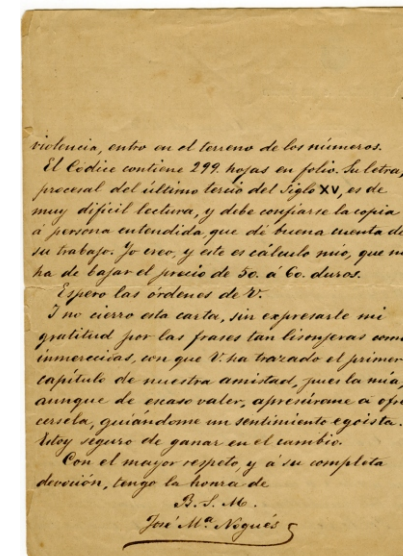 violencia, entro en el terreno de los números.
El Códice contiene 299. hojas en folio. Su letra,
procesal del último tercio del Siglo XV, es de
muy dificil lectura, y debe confiarse la copia
á persona entendida, que dé buena cuenta de
su trabajo. Yo creo, y este es cálculo mio, que no
ha de bajar el precio de 50. á 60. duros.
Espero las órdenes de V.
Y no cierro esta carta, sin expresarle mi
gratitud por las frases tan lisonjeras como
inmerecidas, con que V. ha trazado el primer
capítulo de nuestra amistad, pues la mia,
aunque de escaso valer, apresúrame á ofre
cersela, guiándome un sentimiento egoista.
Estoy seguro de ganar en el cambio.
Con el mayor respeto, y á su completa
devoción, tengo la honra de
B. S. M.
José Mª Nogués